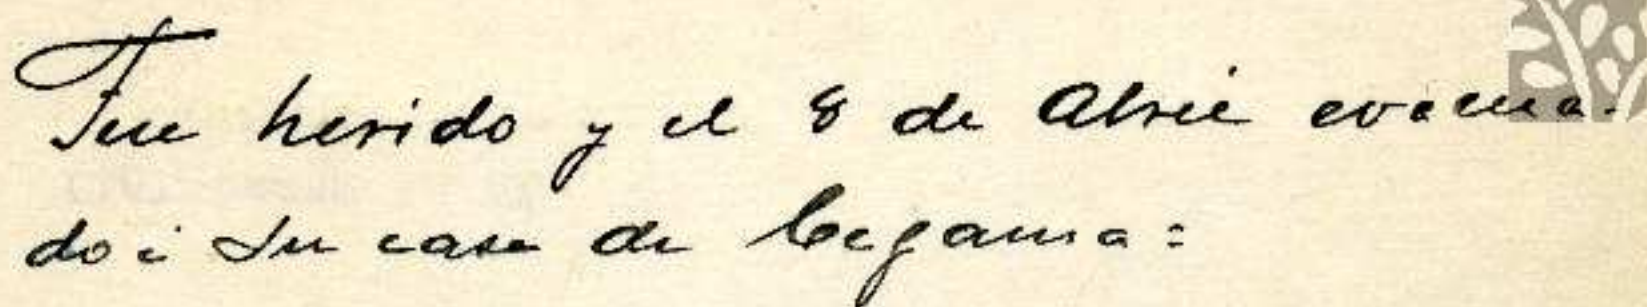 Fue herido y el 8 de Abril evacua-
do a su casa de Cegama=